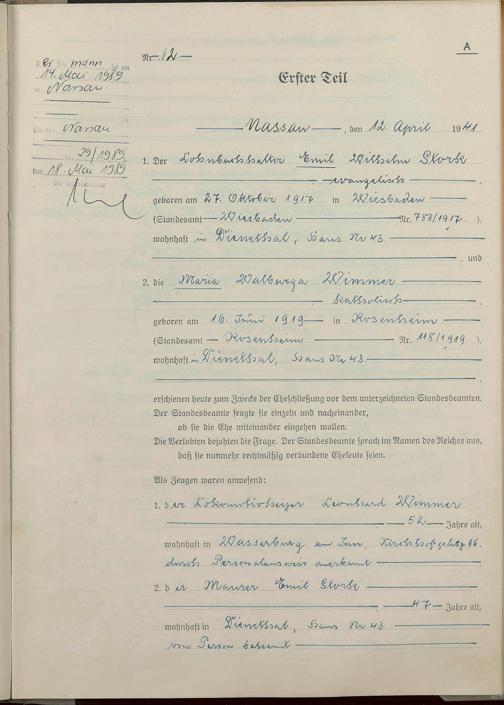 A
Nr. 12
Der Ehemann ist am
14. Mai 1989
in Nassau
Nassau
Nr. 29/1989
Den 18. Mai 1989
Erster Teil
Nassau, den 12. April 1941
1. Der Lohnbuchhalter Emil Wilhelm Stork
evangelisch
geboren am 27. Oktober 1917 in Wiesbaden
(Standesamt Wiesbaden Nr. 783/1917).
wohnhaft in Dienethal, Haus Nr 43
, und
2. die Maria Walburga Wimmer
, katholisch
geboren am 16. Juni 1919 in Rosenheim
(Standesamt Rosenheim Nr. 118/1919).
wohnhaft in Dienethal, Haus Nr 43
erschienen heute zum Zwecke der Eheschließung vor dem unterzeichneten Standesbeamten.
Der Standesbeamte fragte sie einzeln und nacheinander,
ob sie die Ehe miteinander eingehen wollen.
Die Verlobten bejahten die Frage. Der Standesbeamte sprach im Namen des Reiches aus,
daß sie nunmehr rechtmäßig verbundene Eheleute seien.
Als Zeugen waren anwesend:
1. der Lokomotivheizer Leonhard Wimmer
52 Jahre alt,
wohnhaft in Wasserburg am Inn,
durch Personalausweis anerkannt
2. der Maurer Emil Stork
, 47 Jahre alt,
wohnhaft in Dienethal, Haus Nr 43
von Person bekannt